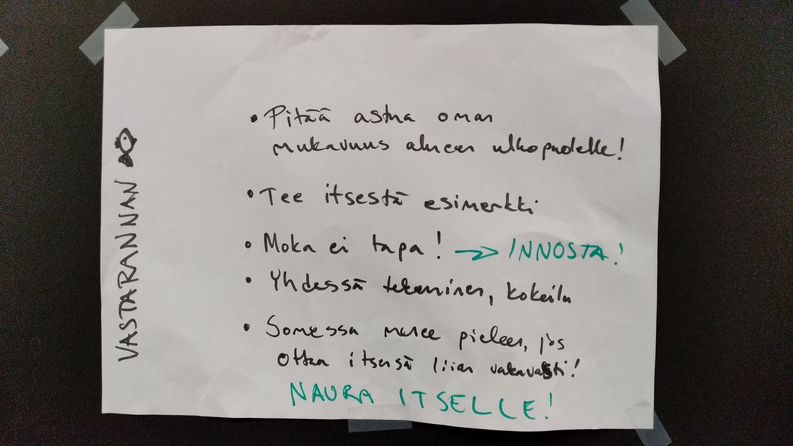 VASTARANNAN
• Pitää astua oman
mukavuus alueen ulkopuolelle!
• Tee itsestä esimerkki
• Moka ei tapa! → INNOSTA!
• Yhdessä tekeminen, kokeilu
• Somessa menee pieleen, jos
ottaa itsensä liian vakavasti!
NAURA ITSELLE!